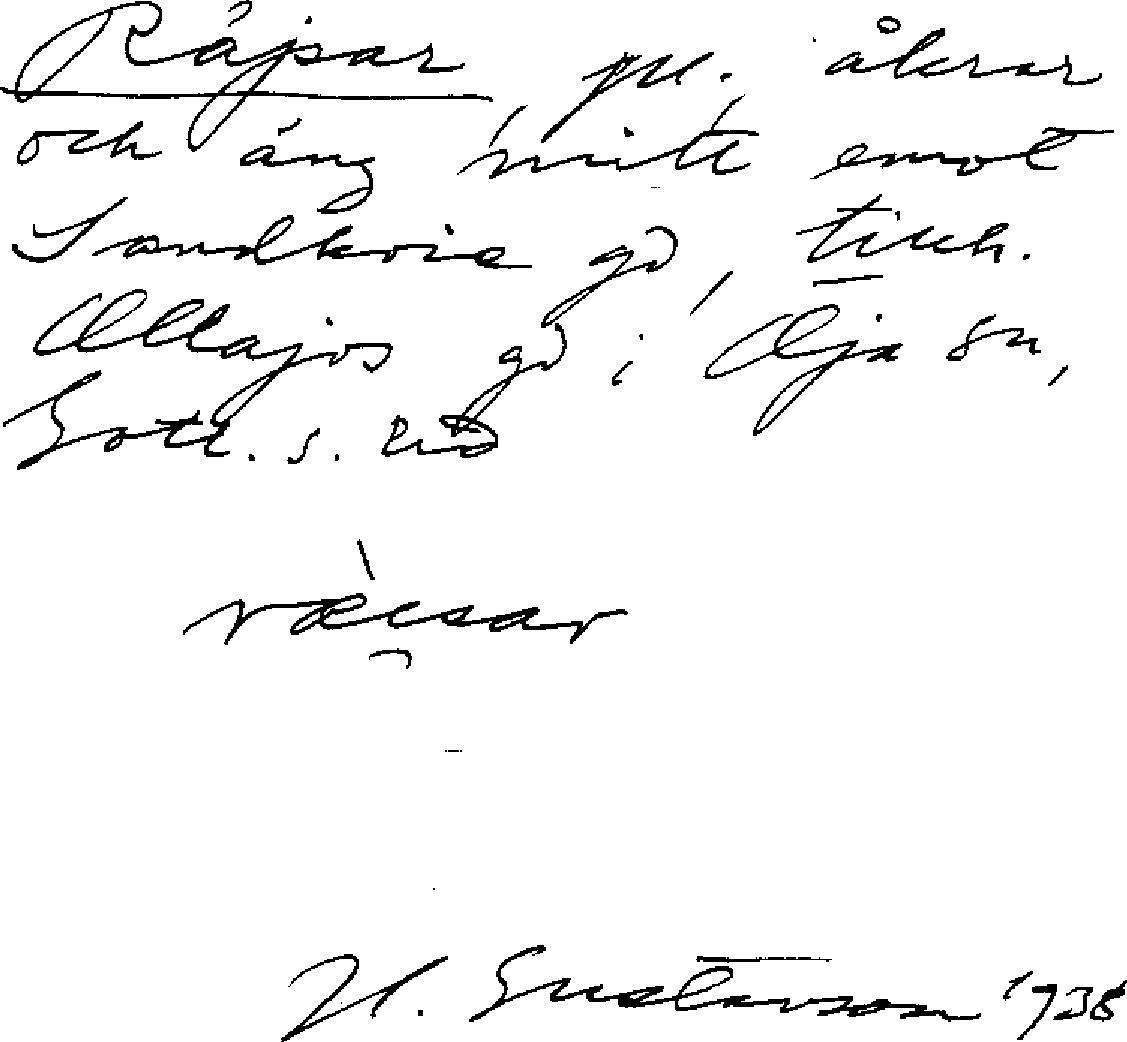 Räjsar, pl. åkrar
och äng mitt emot
Sandkvie gd, tillh.
Ollajvs gd i Öja sn,
Gotl. s. hd
H. Gustavson 1938